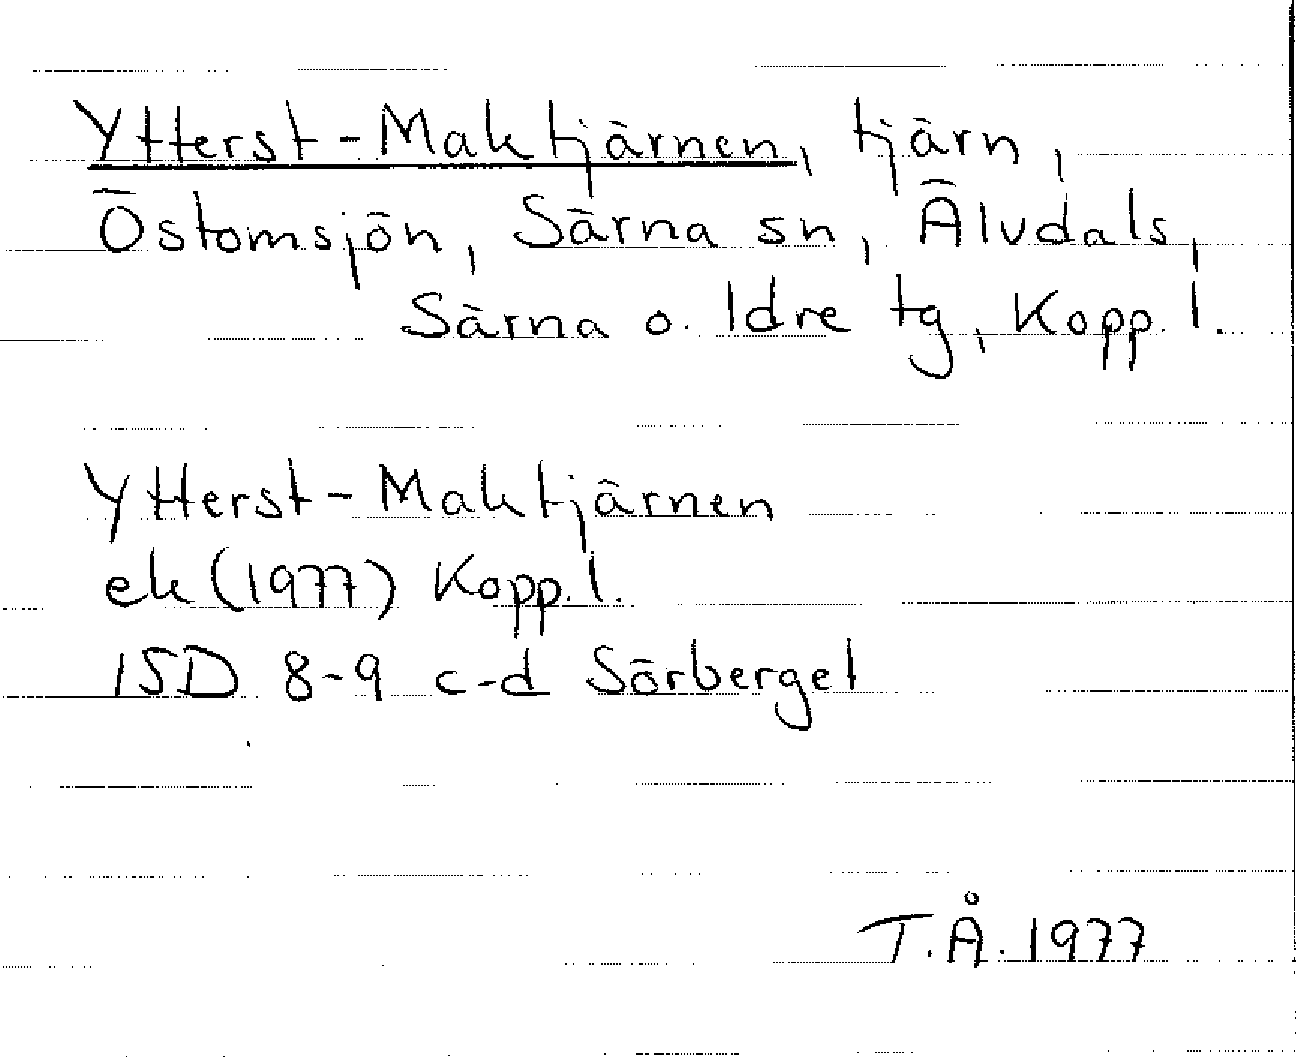 Ytterst-Maktjärnen, tjärn,
Östomsjön, Särna sn, Älvdals,
Särna o. Idre tg, Kopp. l.
Ytterst-Maktjärnen
ek (1977) Kopp. l.
15D 8-9 c-d Sörberget
T.Å. 1977